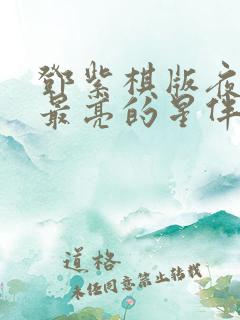 鄧紫棋版夜
最亮的星伴
道格
未经同意禁止转载